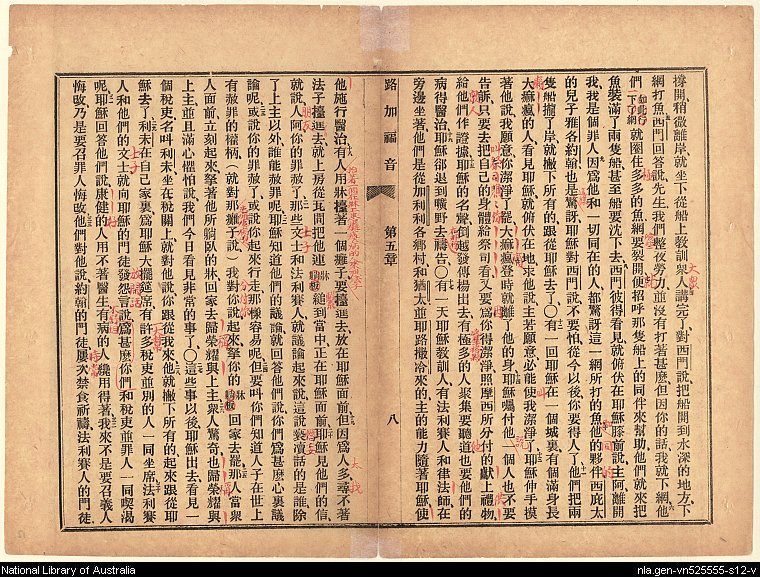 撐開、稍微離岸就坐下從船上教訓衆人講完了、對西門說把船開到水深的地方、下
網打魚西門回答說先生我們整夜勞力並沒有打著甚麼但因你的話我就下網他
們 如此行 下了網 就圈住多多的魚網要裂開便招呼那隻船上的同伴來幫助他們就來把
魚裝滿了兩隻船甚至船要沉下去西門彼得看見就俯伏在耶穌膝前說主阿離開
我我是個罪人因爲他和一切同在的人都驚訝這一網所打的魚他的夥伴西庇太
的兒子雅各約翰也是驚訝耶穌對西門說不要怕從今以後你要得人了他們把兩
隻船攏了岸就撇下所有的跟從耶穌去了〇有一回耶穌在一個城裏有個滿身長
大痲瘋的人看見耶穌就俯伏在地求他說主若願意必能使我潔淨了耶穌伸手摸
著他說我願意你潔淨了罷大痲瘋登時就離了他的身耶穌囑付他一個人也不要
告訴只要去把自己的身體給祭司看又要爲你得潔淨照摩西所分付的獻上禮物
給他們作證據耶穌的名聲倒越發傳揚出去有極多的人聚集要聽道也要他們的
病得醫治耶穌卻退到曠野去禱告〇有一天耶穌教訓人有法利賽人和律法師在
旁邊坐著他們是從加利利各鄉村和猶太並耶路撒冷來的主的能力隨著耶穌使
路加福音 第五章 八
他施行醫治有人用牀擡著一個癱子要擡進去放在耶穌面前但因爲人多尋不著
法子擡進去就上房從瓦間把他連牀縋到當中正在耶穌面前耶穌見他們的信
就說人阿你的罪赦了那些文士和法利賽人就議論起來說這說褻瀆話的是誰除
了上主以外誰能赦罪呢耶穌知道他們的議論就回答他們說你們爲甚麼心裏議
論呢或說你的罪赦了或說你起來行走那樣容易呢但要叫你們知道人子在世上
有赦罪的權柄、（就對那癱子說）我對你說起來、拏你的牀回家去罷那人當衆
人面前立刻起來拏著他所躺臥的牀回家去歸榮耀與上主衆人驚奇也歸榮耀與
上主並且滿心懼怕說我們今日看見非常的事了〇這些事以後耶穌出去看見一
個稅吏名叫利未坐在稅關上就對他說你跟從我來他就撇下所有的起來跟從耶
穌去了利未在自己家裏爲耶穌大擺筵席有許多稅吏並別的人一同坐席法利賽
人和他們的文士就向耶穌的門徒發怨言說爲甚麼你們和稅吏並罪人一同喫喝
呢耶穌回答他們說康健的人用不著醫生有病的人纔用得著我來不是要召義人
悔改乃是要召罪人悔改他們對他說約翰的門徒屢次禁食祈禱法利賽人的門徒
National Library of Australia
nla.gen-vn525555-s12-v